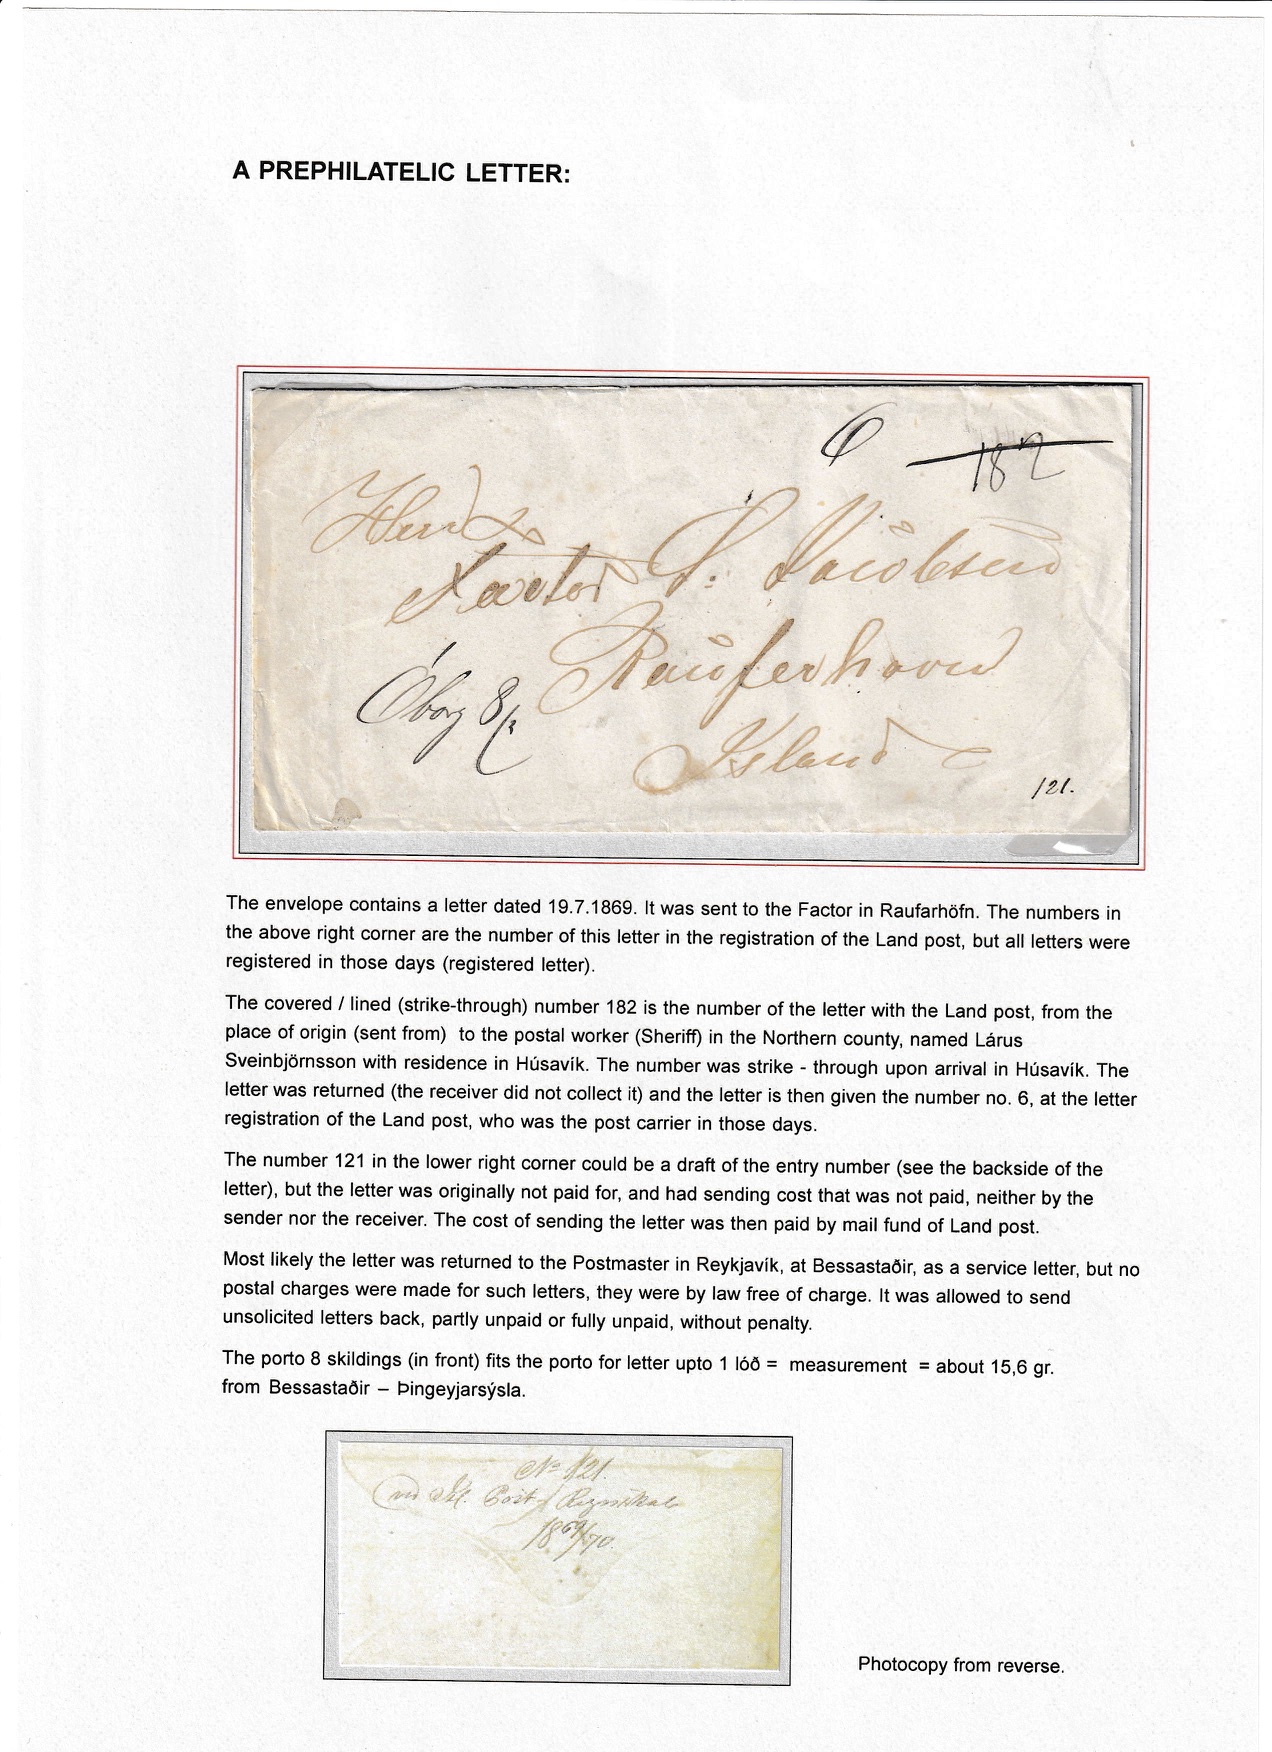 A PREPHILATELIC LETTER:
6
182
Herr
Factor S. Jacobsen
Rauferhavn
Óborg 8/
Island
121.
The envelope contains a letter dated 19.7.1869. It was sent to the Factor in Raufarhöfn. The numbers in
the above right corner are the number of this letter in the registration of the Land post, but all letters were
registered in those days (registered letter).
The covered / lined (strike-through) number 182 is the number of the letter with the Land post, from the
place of origin (sent from) to the postal worker (Sheriff) in the Northern county, named Lárus
Sveinbjörnsson with residence in Húsavík. The number was strike - through upon arrival in Húsavík. The
letter was returned (the receiver did not collect it) and the letter is then given the number no. 6, at the letter
registration of the Land post, who was the post carrier in those days.
The number 121 in the lower right corner could be a draft of the entry number (see the backside of the
letter), but the letter was originally not paid for, and had sending cost that was not paid, neither by the
sender nor the receiver. The cost of sending the letter was then paid by mail fund of Land post.
Most likely the letter was returned to the Postmaster in Reykjavík, at Bessastaðir, as a service letter, but no
postal charges were made for such letters, they were by law free of charge. It was allowed to send
unsolicited letters back, partly unpaid or fully unpaid, without penalty.
The porto 8 skildings (in front) fits the porto for letter upto 1 lóð = measurement = about 15,6 gr.
from Bessastaðir – Þingeyjarsýsla.
No 121.
Post
1869/70.
Photocopy from reverse.